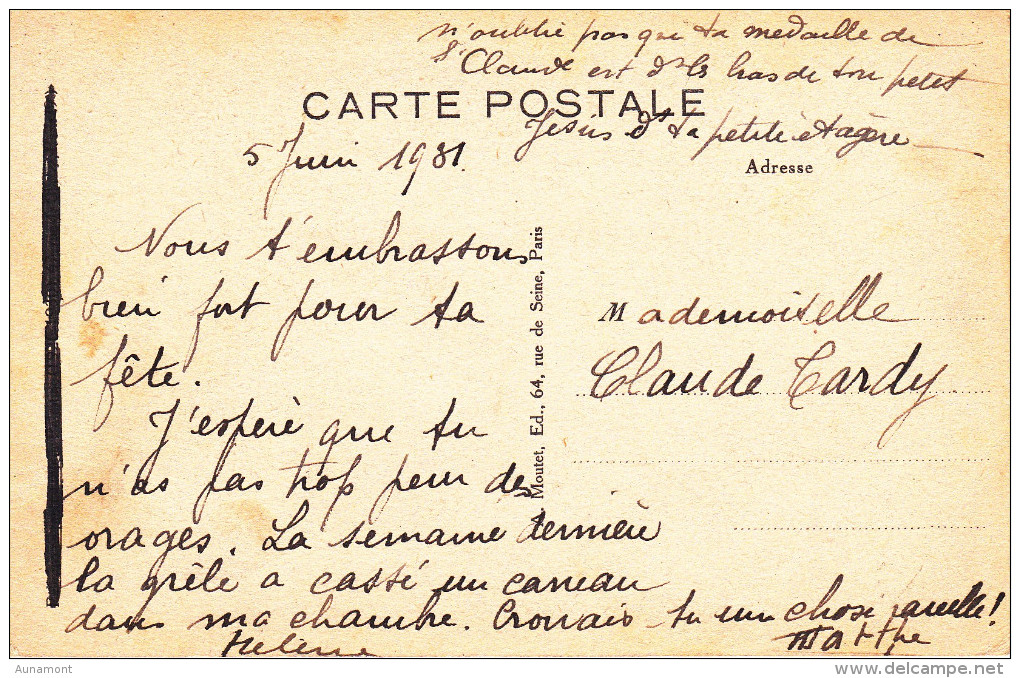 n'oublie pas que ta medaille de
St Claude est ds le bas de ton petit
CARTE POSTALE
Jésus ds ta petite étagère
Adresse
5 Juin 1931.
Nous t'embrassons
bien fort pour ta
fête.
J'espère que tu
n'as pas trop peur des
orages. La semaine dernière
la grêle a cassé un carreau
dans ma chambre. Crois-tu une chose pareille!
Hélène Marthe
Moutet, Ed., 64, rue de Seine, Paris
Mademoiselle
Claude Tardy
Aunamont
delcampe.net